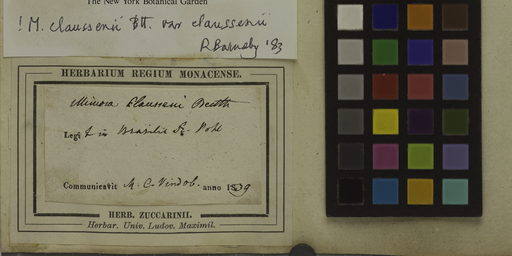 The New York Botanical Garden
! M. claussenii Bth. var claussenii
R Barneby '83
HERBARIUM REGIUM MONACENSE.
Mimosa Clausseni Benth
Legit in Brasilia Dr. Pohl
Communicavit M. C. Vindob. anno 1839
HERB. ZUCCARINII.
Herbar. Univ. Ludov. Maximil.